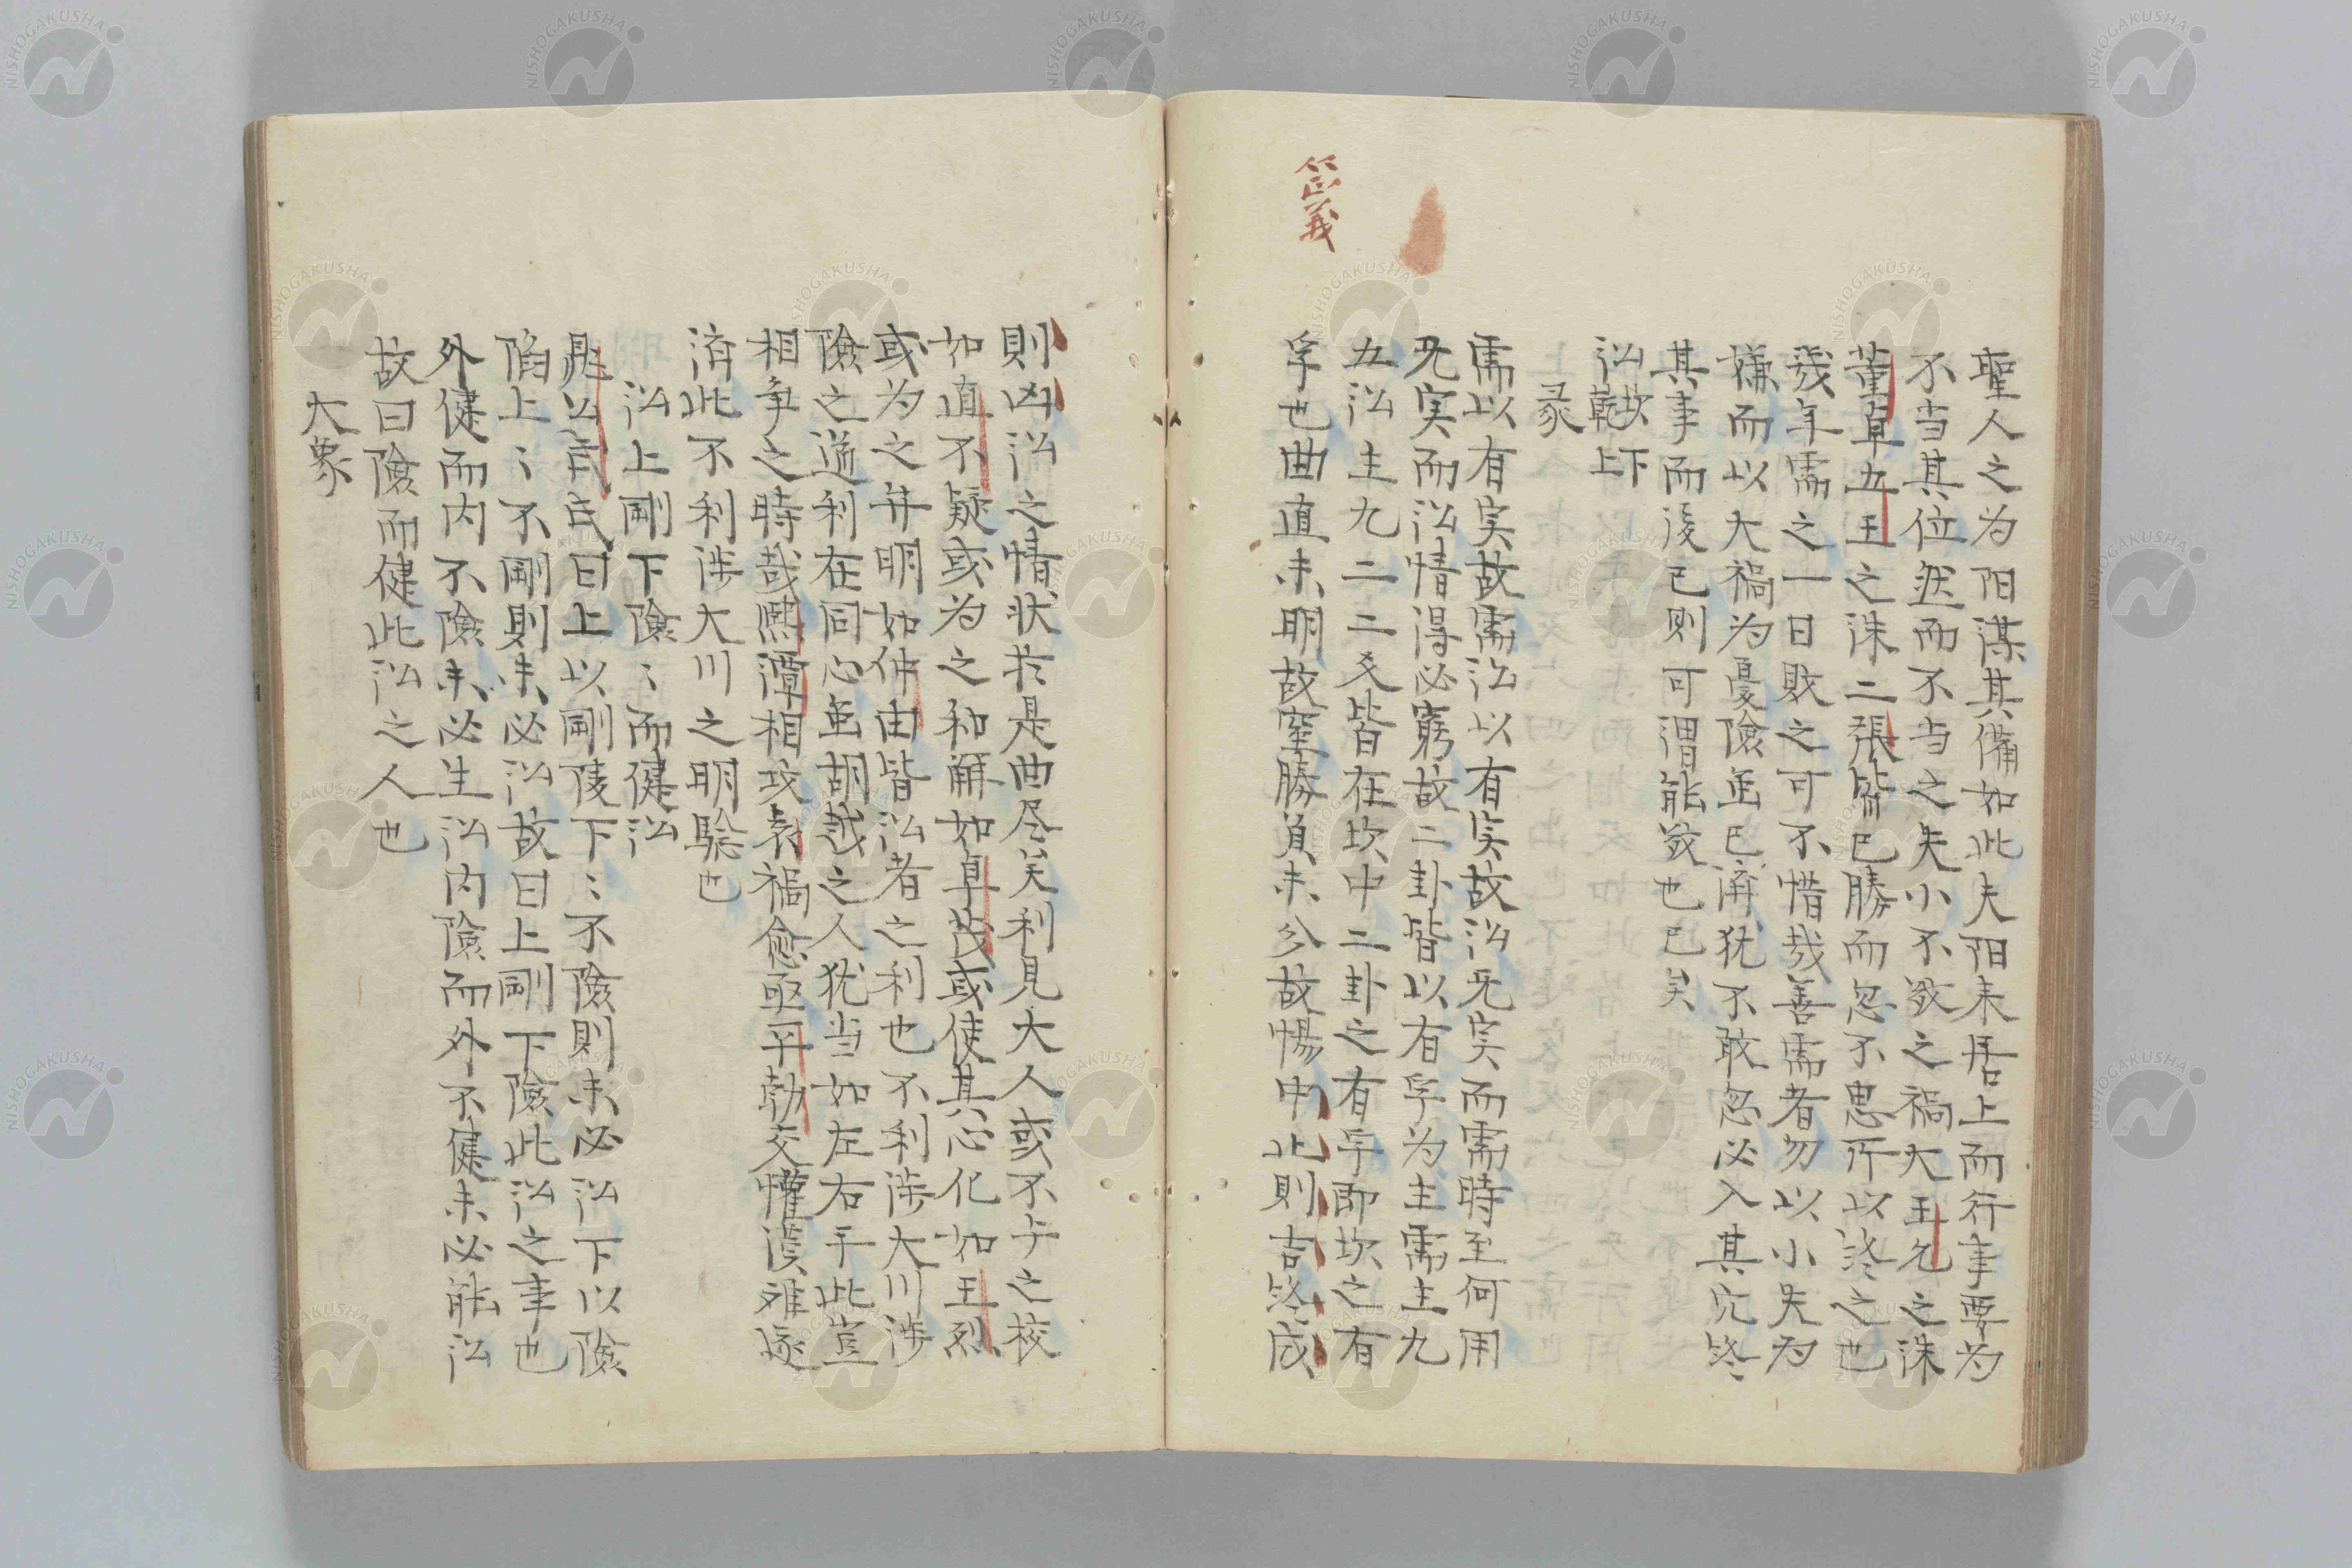 聖人之为阳谋其備如此夫阳来居上而行事要为
不当其位然而不当之失小不敬之禍大王允之誅
董卓五王之誅二張皆已勝而忽不思所以終之也
幾年需之一日敗之可不惜哉善需者勿以小失为
嫌而以大禍为憂險虽已濟犹不敢忽必入其穴終
其事而後已则可謂能敬也已矣
訟坎下乾上
彖
需以有実故需訟以有実故訟无実而需時至何用
无実而訟情得必窮故二卦皆以有孚为主需主九
五訟主九二二爻皆在坎中二卦之有孚即坎之有
孚也曲直未明故窒勝負未分故惕中止則吉終成
義
則凶訟之情状於是曲尽矣利見大人或不与之校
如直不疑或为之和解如卓茂或使其心化如王烈
或为之弁明如仲由皆訟者之利也不利涉大川涉
險之道利在同心虽胡越之人犹当如左右手此豈
相争之時哉熙潭相攻袁禍愈亟平勃交懽漢难遂
済此不利涉大川之明驗也
訟上剛下險〻而健訟
晁公武氏曰上以剛陵下〻不險則未必訟下以險
陷上〻不剛則未必訟故曰上剛下險此訟之事也
外健而内不險未必生訟内險而外不健未必能訟
故曰險而健此訟之人也
大象
NISHOGAKUSHA